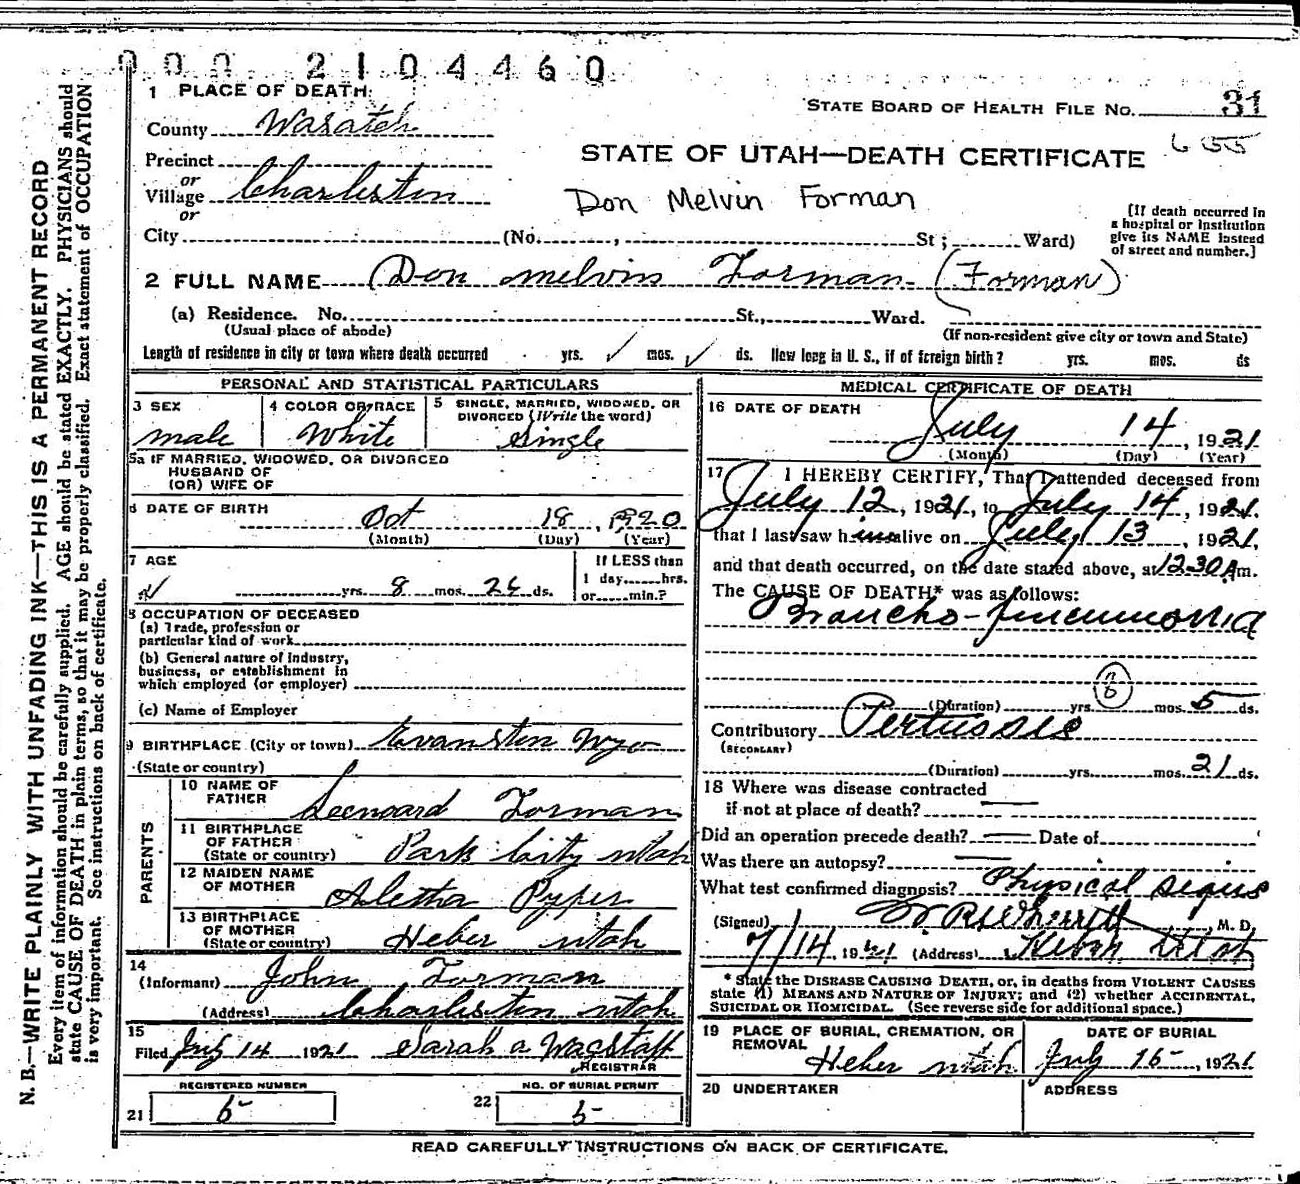 000 2104460
1 PLACE OF DEATH:
STATE BOARD OF HEALTH FILE NO. 31
County Wasatch
655
STATE OF UTAH—DEATH CERTIFICATE
Precinct
or
Village Charleston
or
Don Melvin Forman
[If death occurred in a hospital or institution give its NAME instead of street and number.]
City (No. , St ; Ward)
2 FULL NAME (Don Melvin Forman (Forman)
(a) Residence. No. St., Ward.
(Usual place of abode)
(If non-resident give city or town and State)
Length of residence in city or town where death occurred yrs. ✓ mos. ✓ ds. How long in U. S., if of foreign birth? yrs. mos. ds
PERSONAL AND STATISTICAL PARTICULARS
3 SEX
male
4 COLOR OR RACE
White
5 SINGLE, MARRIED, WIDOWED, OR DIVORCED (Write the word)
Single
5a IF MARRIED, WIDOWED, OR DIVORCED
HUSBAND OF
(OR) WIFE OF
6 DATE OF BIRTH
Oct 18, 1920
(Month) (Day) (Year)
7 AGE
yrs. 8 mos. 26 ds.
If LESS than
1 day......hrs.
or......min.?
8 OCCUPATION OF DECEASED
(a) Trade, profession or
particular kind of work
(b) General nature of industry,
business, or establishment in
which employed (or employer)
(c) Name of Employer
9 BIRTHPLACE (City or town) Evanston Wyo
(State or country)
PARENTS
10 NAME OF FATHER Leenoard Forman
11 BIRTHPLACE OF FATHER
(State or country) Park City Utah
12 MAIDEN NAME OF MOTHER Aletha Pyper
13 BIRTHPLACE OF MOTHER
(State or country) Heber Utah
14
(Informant) John Forman
(Address) Charleston Utah
15
Filed July 14 1921 Sarah A Wagstaff
REGISTRAR
REGISTERED NUMBER
21 5
NO. OF BURIAL PERMIT
22 5
MEDICAL CERTIFICATE OF DEATH
16 DATE OF DEATH
July 14, 1921
(Month) (Day) (Year)
17 I HEREBY CERTIFY, That I attended deceased from
July 12, 1921, to July 14, 1921.
that I last saw him alive on July 13, 1921,
and that death occurred, on the date stated above, at 12.30 A.m.
The CAUSE OF DEATH* was as follows:
Broncho-pneumonia
(Duration) yrs. mos. 5 ds.
Contributory Pertussis
(SECONDARY)
(Duration) yrs. mos. 21 ds.
18 Where was disease contracted
if not at place of death?
Did an operation precede death? Date of
Was there an autopsy?
What test confirmed diagnosis? Physical signs
(Signed) W R Wherritt, M. D.
7/14 1921 (Address) Heber Utah
* State the DISEASE CAUSING DEATH, or, in deaths from VIOLENT CAUSES
state (1) MEANS AND NATURE OF INJURY; and (2) whether ACCIDENTAL,
SUICIDAL OR HOMICIDAL. (See reverse side for additional space.)
19 PLACE OF BURIAL, CREMATION, OR REMOVAL
Heber Utah
DATE OF BURIAL
July 15, 1921
20 UNDERTAKER
ADDRESS
READ CAREFULLY INSTRUCTIONS ON BACK OF CERTIFICATE.
N. B.—WRITE PLAINLY WITH UNFADING INK—THIS IS A PERMANENT RECORD
Every item of information should be carefully supplied. AGE should be stated EXACTLY. PHYSICIANS should
state CAUSE OF DEATH in plain terms, so that it may be properly classified. Exact statement of OCCUPATION
is very important. See instructions on back of certificate.